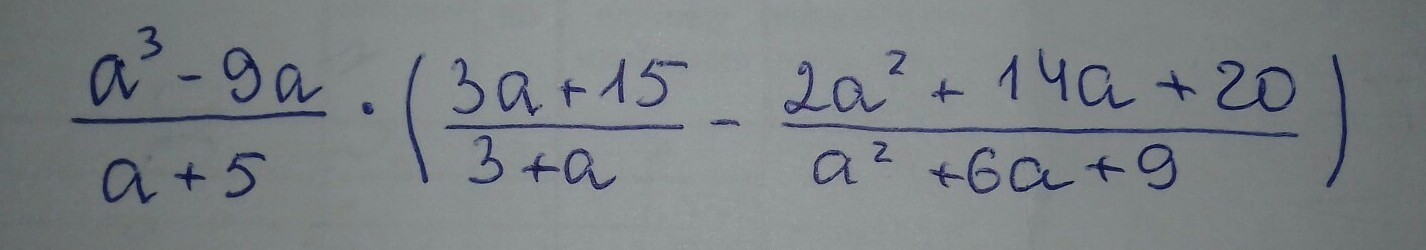 \frac{a^3 - 9a}{a + 5} \cdot \left( \frac{3a + 15}{3 + a} - \frac{2a^2 + 14a + 20}{a^2 + 6a + 9} \right)